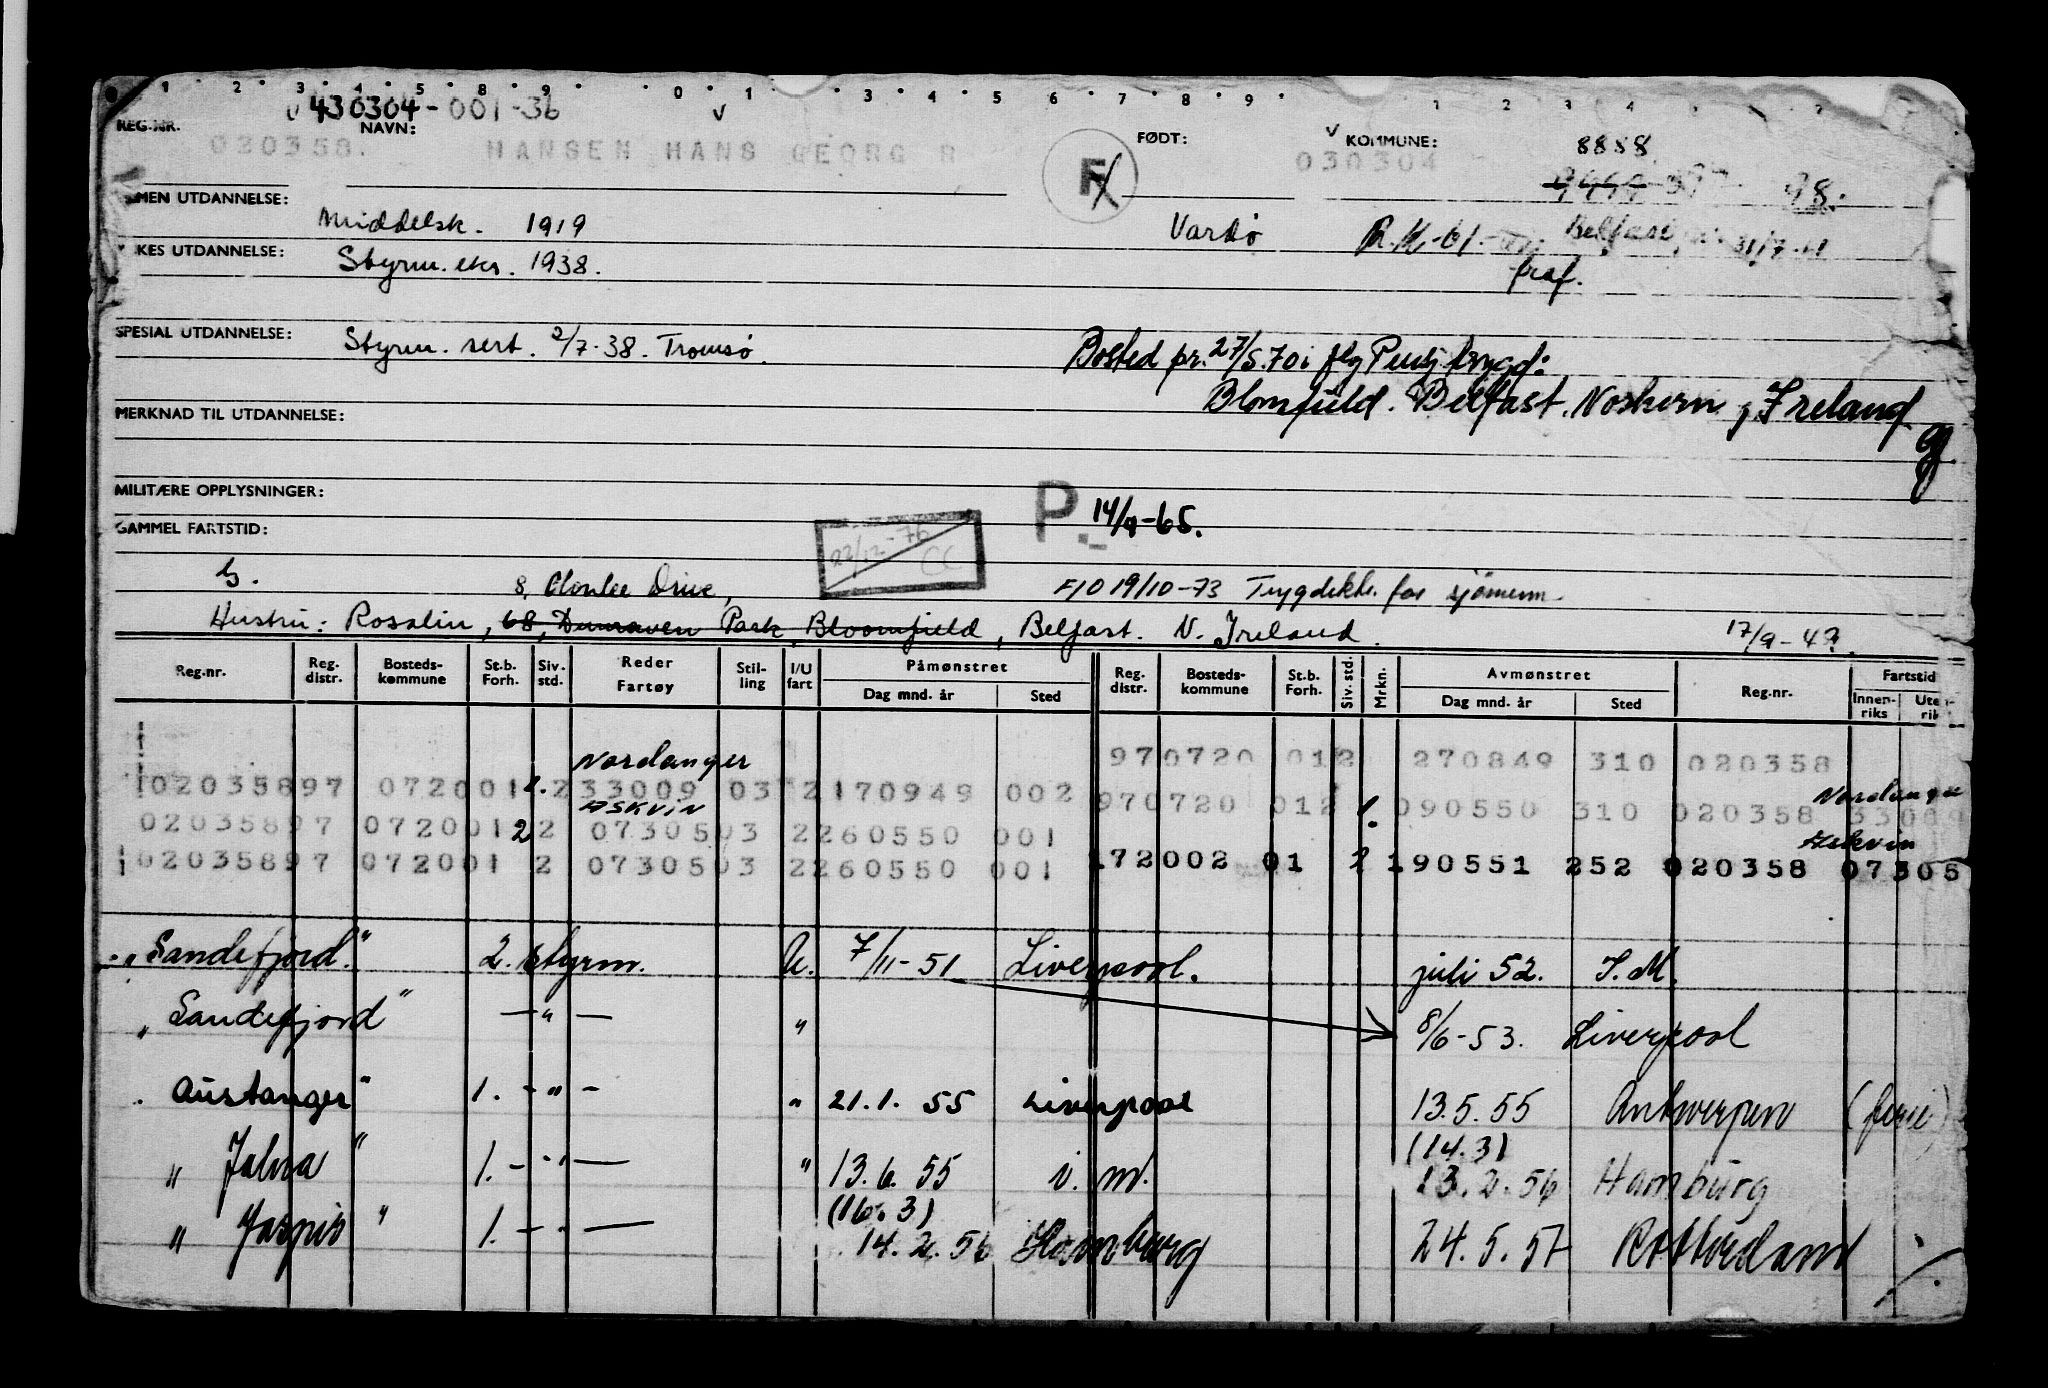 1 2 3 4 5 8 9 0 1 3 4 5 6 7 8 9 1 2 3 4
430304-001-36
REG.NR. NAVN: FØDT: KOMMUNE: 8888
020358. HANSEN HANS GEORG R F 030304 98.
UTDANNELSE: Middelsk. 1919 Vardø R.K.-61- Belfast 31/7-61
UTDANNELSE: Styrm. eks. 1938. fraf.
SPESIAL UTDANNELSE: Styrm. sert. 2/7-38. Tromsø.
Bosted pr. 27/5.70 i flg Pensj.trygd:
Blomfield. Belfast. Northern, Ireland
MERKNAD TIL UTDANNELSE:
MILITÆRE OPPLYSNINGER:
P. 14/9-65.
GAMMEL FARTSTID:
22/12-76 CC
G. 8, Clonlee Drive, F/O 19/10-73 Trygdekt. for sjömenn
Hustru: Rosalin, 68, Dunraven Park, Bloomfield, Belfast. N. Ireland. 17/9-43.
Reg.nr. Reg. distr. Bosteds-kommune St.b. Forh. Siv. std. Reder Fartøy Stil-ling I/U fart Påmønstret Dag mnd. år Sted Reg. distr. Bosteds-kommune St.b. Forh. Siv. std. Mrkn. Avmønstret Dag mnd. år Sted Reg.nr. Fartstid Innen-riks Uten-rik
970720 012 270849 310 020358
Nordanger Nordange
02035897 072001 2. 2 33009 03 2 170949 002 970720 012 1. 090550 310 020358 33009
Askvin Askvin
02035897 072001 2 2 07305 03 2 260550 001
02035897 072001 2 07305 03 2 260550 001 172002 01 2 190551 252 020358 07305
"Sandefjord." 2. styrm. U. 7/11-51 Liverpool. juli 52. I.M.
"Sandefjord" — " — " 8/6-53. Liverpool
Austanger" 1. - " - " 21.1. 55 Liverpool 13.5.55 Antwerpen (ferie)
(14.3)
" Jalna " 1. - " — " 13.6.55 i. m. 13.2.56 Hamburg
(16.3)
" Jaspis " 1. - " — 14.2.56 Hamburg 24.5.57 Rotterdam